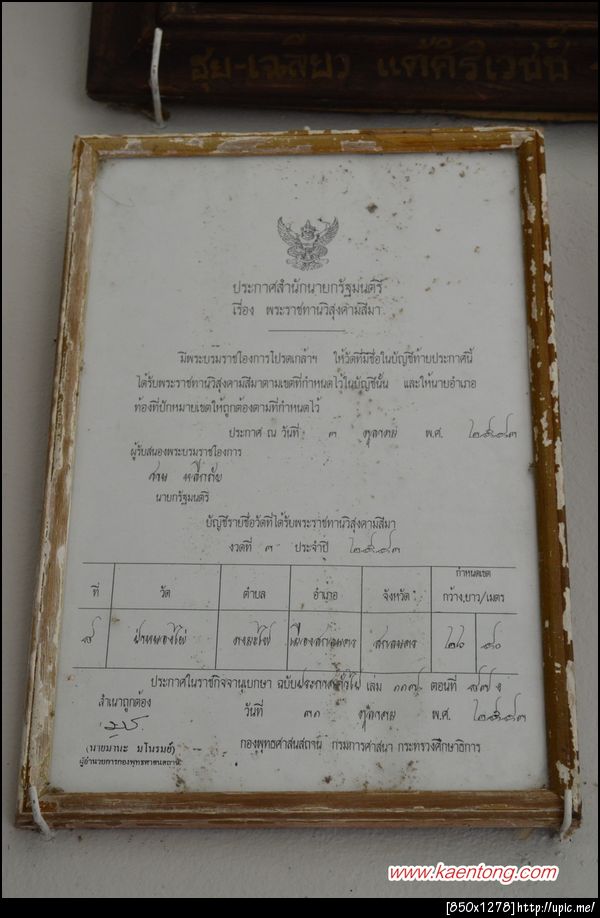 ชุย-เฉลียว แต้ศิริเวชช์
ประกาศสำนักนายกรัฐมนตรี
เรื่อง พระราชทานวิสุงคามสีมา
มีพระบรมราชโองการโปรดเกล้าฯ ให้วัดที่มีชื่อในบัญชีท้ายประกาศนี้
ได้รับพระราชทานวิสุงคามสีมาตามเขตที่กำหนดไว้ในบัญชีนั้น และให้นายอำเภอ
ท้องที่ปักหมายเขตให้ถูกต้องตามที่กำหนดไว้
ประกาศ ณ วันที่ ๓ ตุลาคม พ.ศ. ๒๕๔๓
ผู้รับสนองพระบรมราชโองการ
ชวน หลีกภัย
นายกรัฐมนตรี
บัญชีรายชื่อวัดที่ได้รับพระราชทานวิสุงคามสีมา
งวดที่ ๓ ประจำปี ๒๕๔๓
ที่ วัด ตำบล อำเภอ จังหวัด กำหนดเขต กว้าง.ยาว/เมตร
ป่าหนองไผ่ ดงมะไฟ เมืองสกลนคร สกลนคร
ประกาศในราชกิจจานุเบกษา ฉบับประกาศทั่วไป เล่ม ๑๑๗ ตอนที่ ง
สำเนาถูกต้อง วันที่ ๓๑ ตุลาคม พ.ศ. ๒๕๔๓
(นายมานะ มโนรมย์) กองพุทธศาสนสถาน กรมการศาสนา กระทรวงศึกษาธิการ
ผู้อำนวยการกองพุทธศาสนสถาน
www.kaentong.com
[850x1278]http://upic.me/